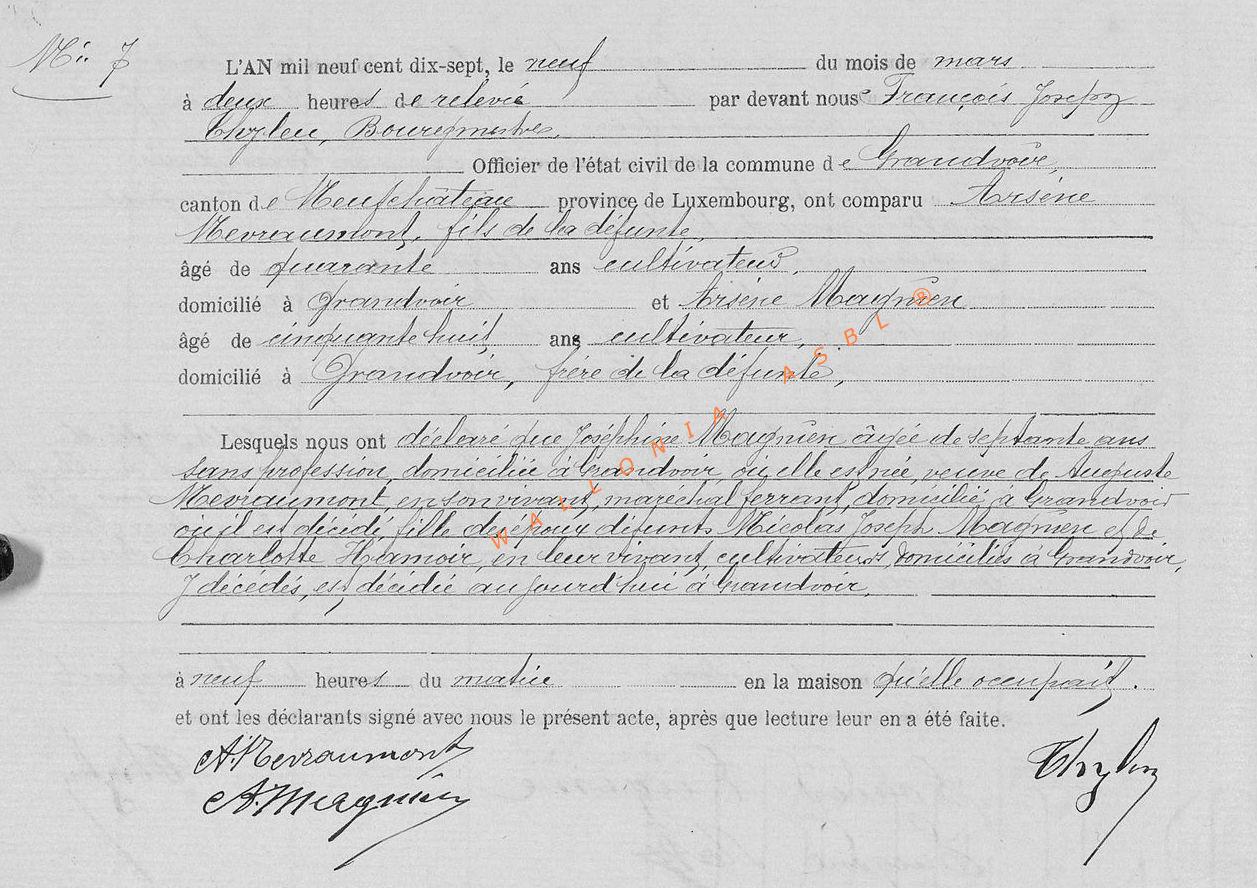 No 7
L'AN mil neuf cent dix-sept, le neuf du mois de mars
à deux heures de relevée par devant nous François Joseph
Thylen, Bourgmestre,
Officier de l'état civil de la commune de Grandvoir,
canton de Neufchâteau province de Luxembourg, ont comparu Arsène
Nevraumont, fils de la défunte,
âgé de quarante ans cultivateur,
domicilié à Grandvoir et Arsène Magnien
âgé de cinquante huit ans cultivateur,
domicilié à Grandvoir, frère de la défunte,
Lesquels nous ont déclaré que Joséphine Magnien âgée de septante ans
sans profession, domiciliée à Grandvoir, où elle est née, veuve de Auguste
Nevraumont, en son vivant, maréchal ferrant, domicilié à Grandvoir
où il est décédé, fille des époux défunts Nicolas Joseph Magnien et de
Charlotte Hamoir, en leur vivant, cultivateurs, domiciliés à Grandvoir,
y décédés, est décédée aujourd'hui à Grandvoir,
à neuf heures du matin en la maison qu'elle occupait.
et ont les déclarants signé avec nous le présent acte, après que lecture leur en a été faite.
A. Nevraumont
A. Magnien
WALLONIA ASBL ®